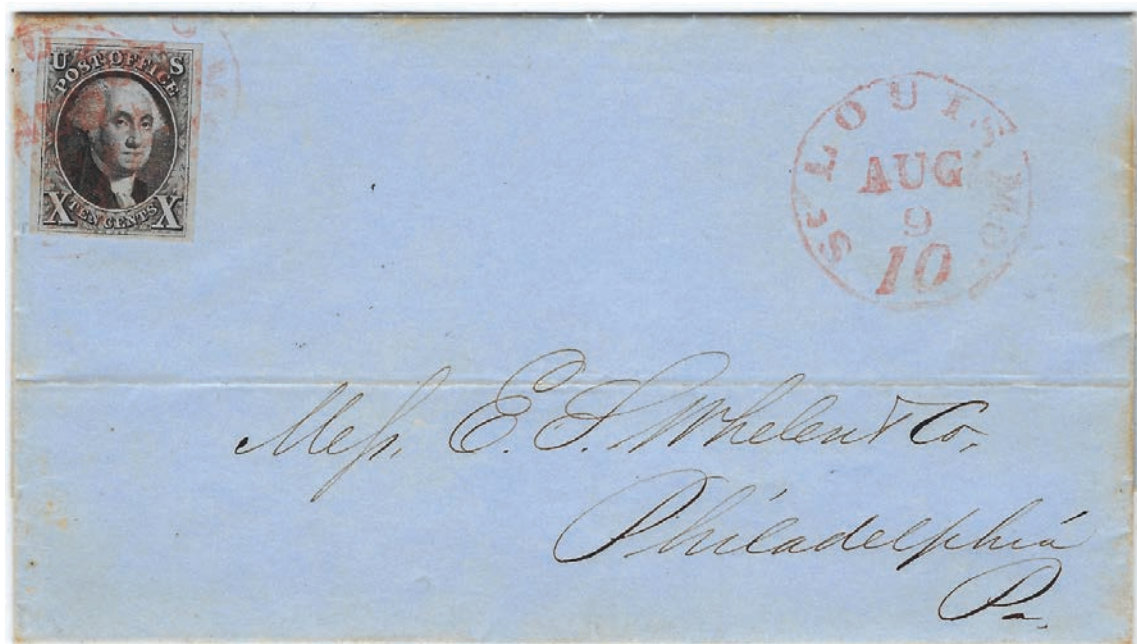 U S
POST OFFICE
X TEN CENTS X
St LOUIS Mo.
AUG
9
10
Meſs. E. S. Whelen & Co,
Philadelphia
Pa.